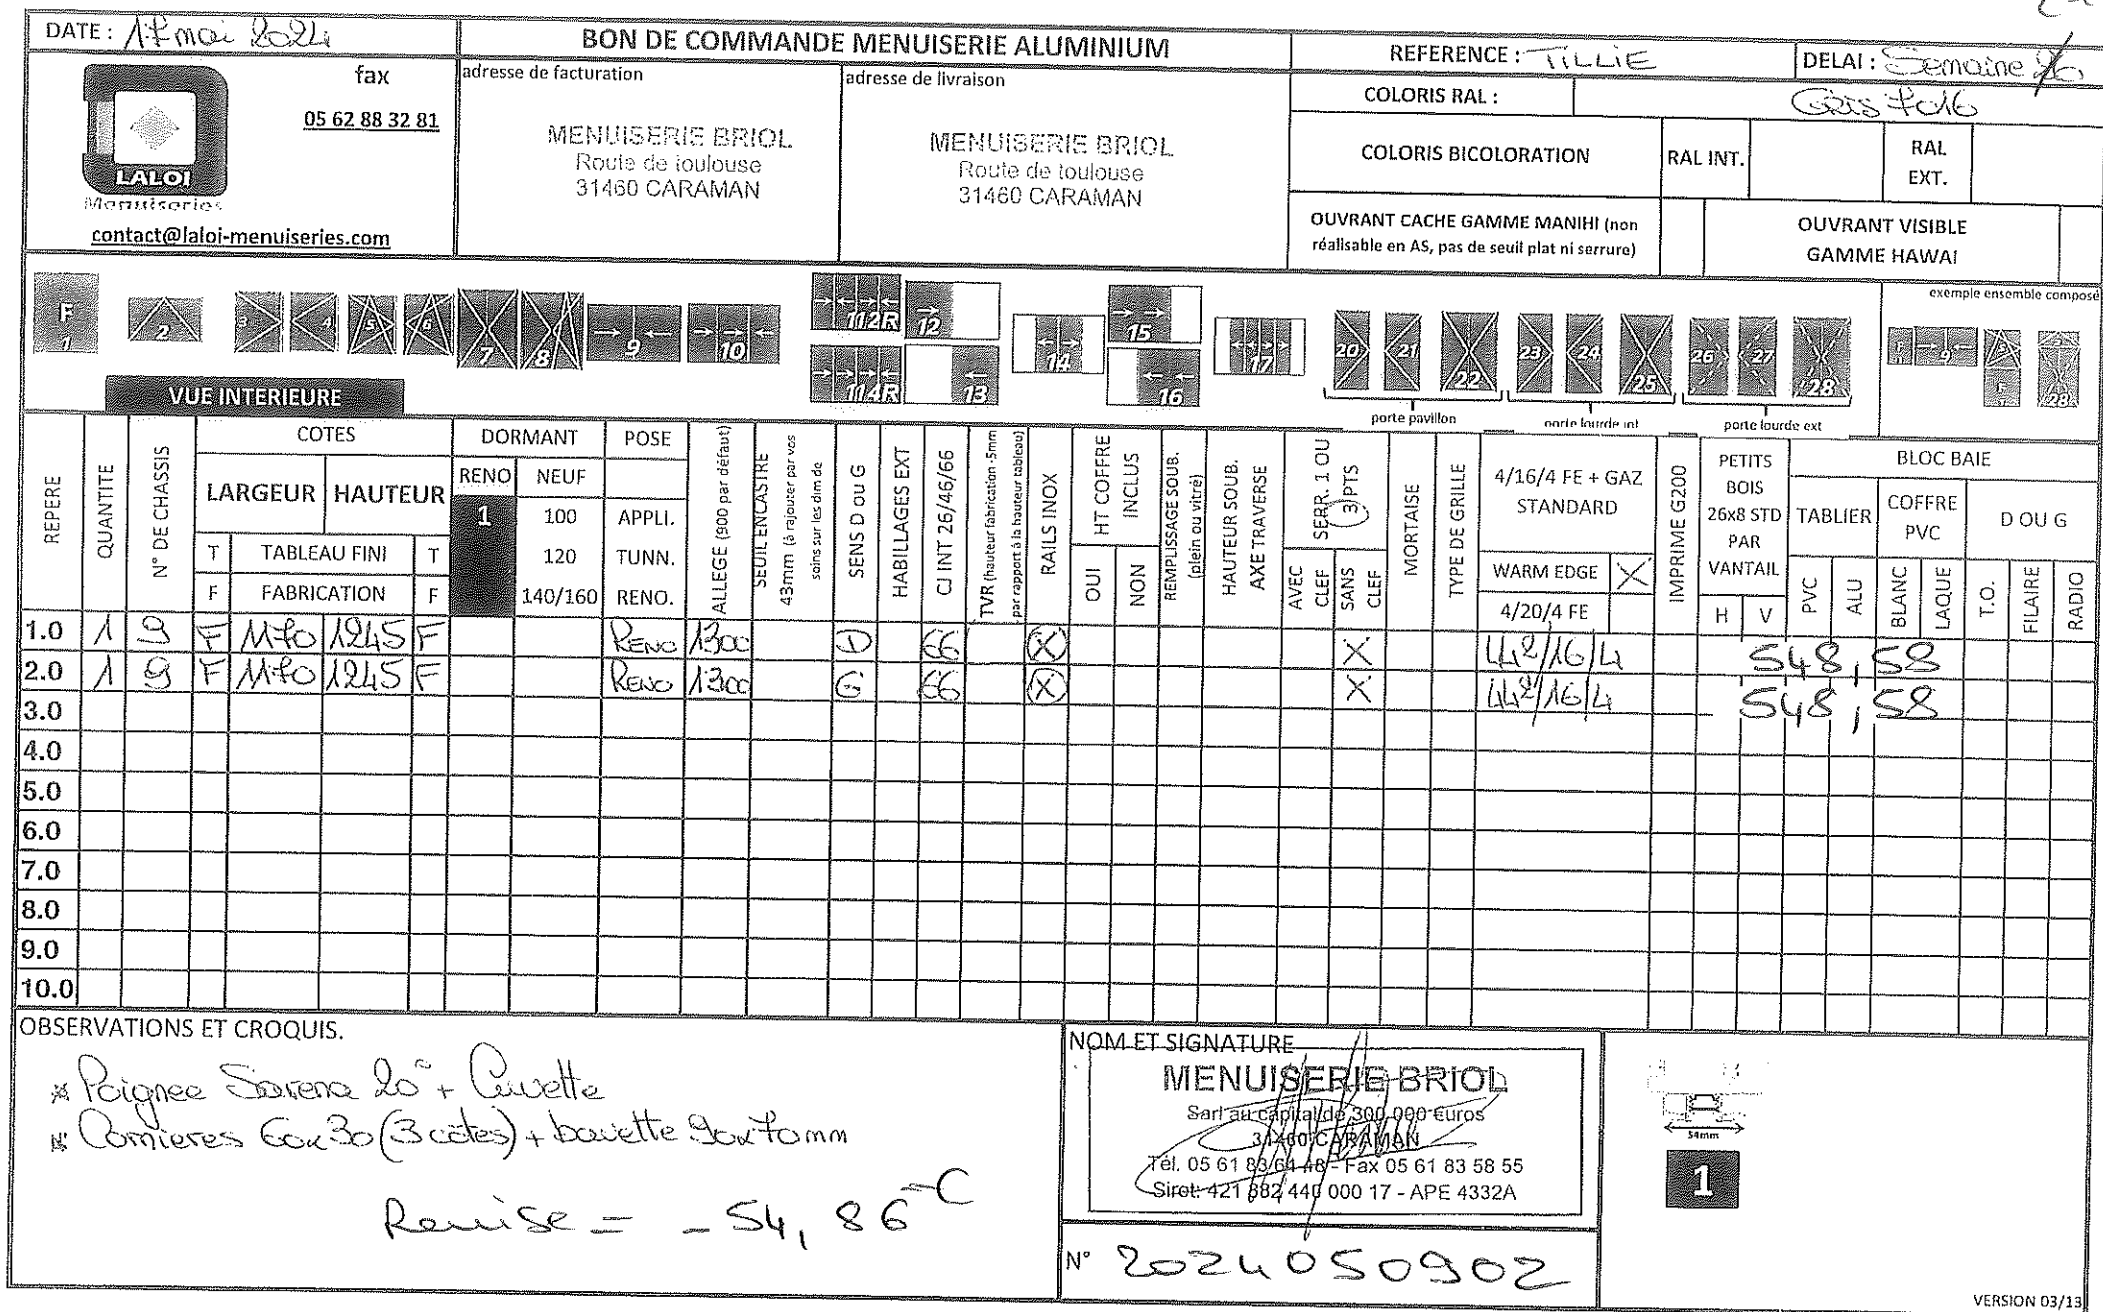 DATE : 17 mai 2024
BON DE COMMANDE MENUISERIE ALUMINIUM
REFERENCE : TILLIE
DELAI : Semaine
fax
05 62 88 32 81
LALOI
Menuiseries
contact@laloi-menuiseries.com
adresse de facturation
MENUISERIE BRIOL
Route de toulouse
31460 CARAMAN
adresse de livraison
MENUISERIE BRIOL
Route de toulouse
31460 CARAMAN
COLORIS RAL : Gris 7016
COLORIS BICOLORATION
RAL INT.
RAL
EXT.
OUVRANT CACHE GAMME MANIHI (non
réalisable en AS, pas de seuil plat ni serrure)
OUVRANT VISIBLE
GAMME HAWAI
F 1 2 3 4 5 6 7 8 9 10 112R 12 14 15 17 20 21 22 23 24 25 26 27 28
114R 13 16
exemple ensemble composé
F 9 5 F 28
porte pavillon
porte lourde int
porte lourde ext
VUE INTERIEURE
REPERE
QUANTITE
N° DE CHASSIS
COTES
LARGEUR HAUTEUR
T TABLEAU FINI T
F FABRICATION F
DORMANT
RENO NEUF
1 100
120
140/160
POSE
APPLI.
TUNN.
RENO.
ALLEGE (900 par défaut)
SEUIL ENCASTRE
43mm (à rajouter par vos
soins sur les dim de
SENS D ou G
HABILLAGES EXT
CJ INT 26/46/66
TVR (hauteur fabrication -5mm
par rapport à la hauteur tableau)
RAILS INOX
HT COFFRE
INCLUS
OUI
NON
REMPLISSAGE SOUB.
(plein ou vitré)
HAUTEUR SOUB.
AXE TRAVERSE
SERR. 1 OU
3 PTS
AVEC
CLEF
SANS
CLEF
MORTAISE
TYPE DE GRILLE
4/16/4 FE + GAZ
STANDARD
WARM EDGE X
4/20/4 FE
IMPRIME G200
PETITS
BOIS
26x8 STD
PAR
VANTAIL
H V
BLOC BAIE
TABLIER
PVC
ALU
COFFRE
PVC
BLANC
LAQUE
D OU G
T.O.
FILAIRE
RADIO
1.0 1 9 F 1170 1245 F RENO 1300 D 66 X X 44²/16/4 548,58
2.0 1 9 F 1170 1245 F RENO 1300 G 66 X X 44²/16/4 548,58
3.0
4.0
5.0
6.0
7.0
8.0
9.0
10.0
OBSERVATIONS ET CROQUIS.
* Poignee Sarena 20 + Cuvette
* Cornieres 60x30 (3 cotes) + bavette 90x70mm
Remise = - 54,86 €
NOM ET SIGNATURE
MENUISERIE BRIOL
Sarl au capital de 300 000 €uros
31460 CARAMAN
Tél. 05 61 83 61 48 - Fax 05 61 83 58 55
Siret: 421 882 440 000 17 - APE 4332A
N° 2024050902
54mm
1
VERSION 03/13